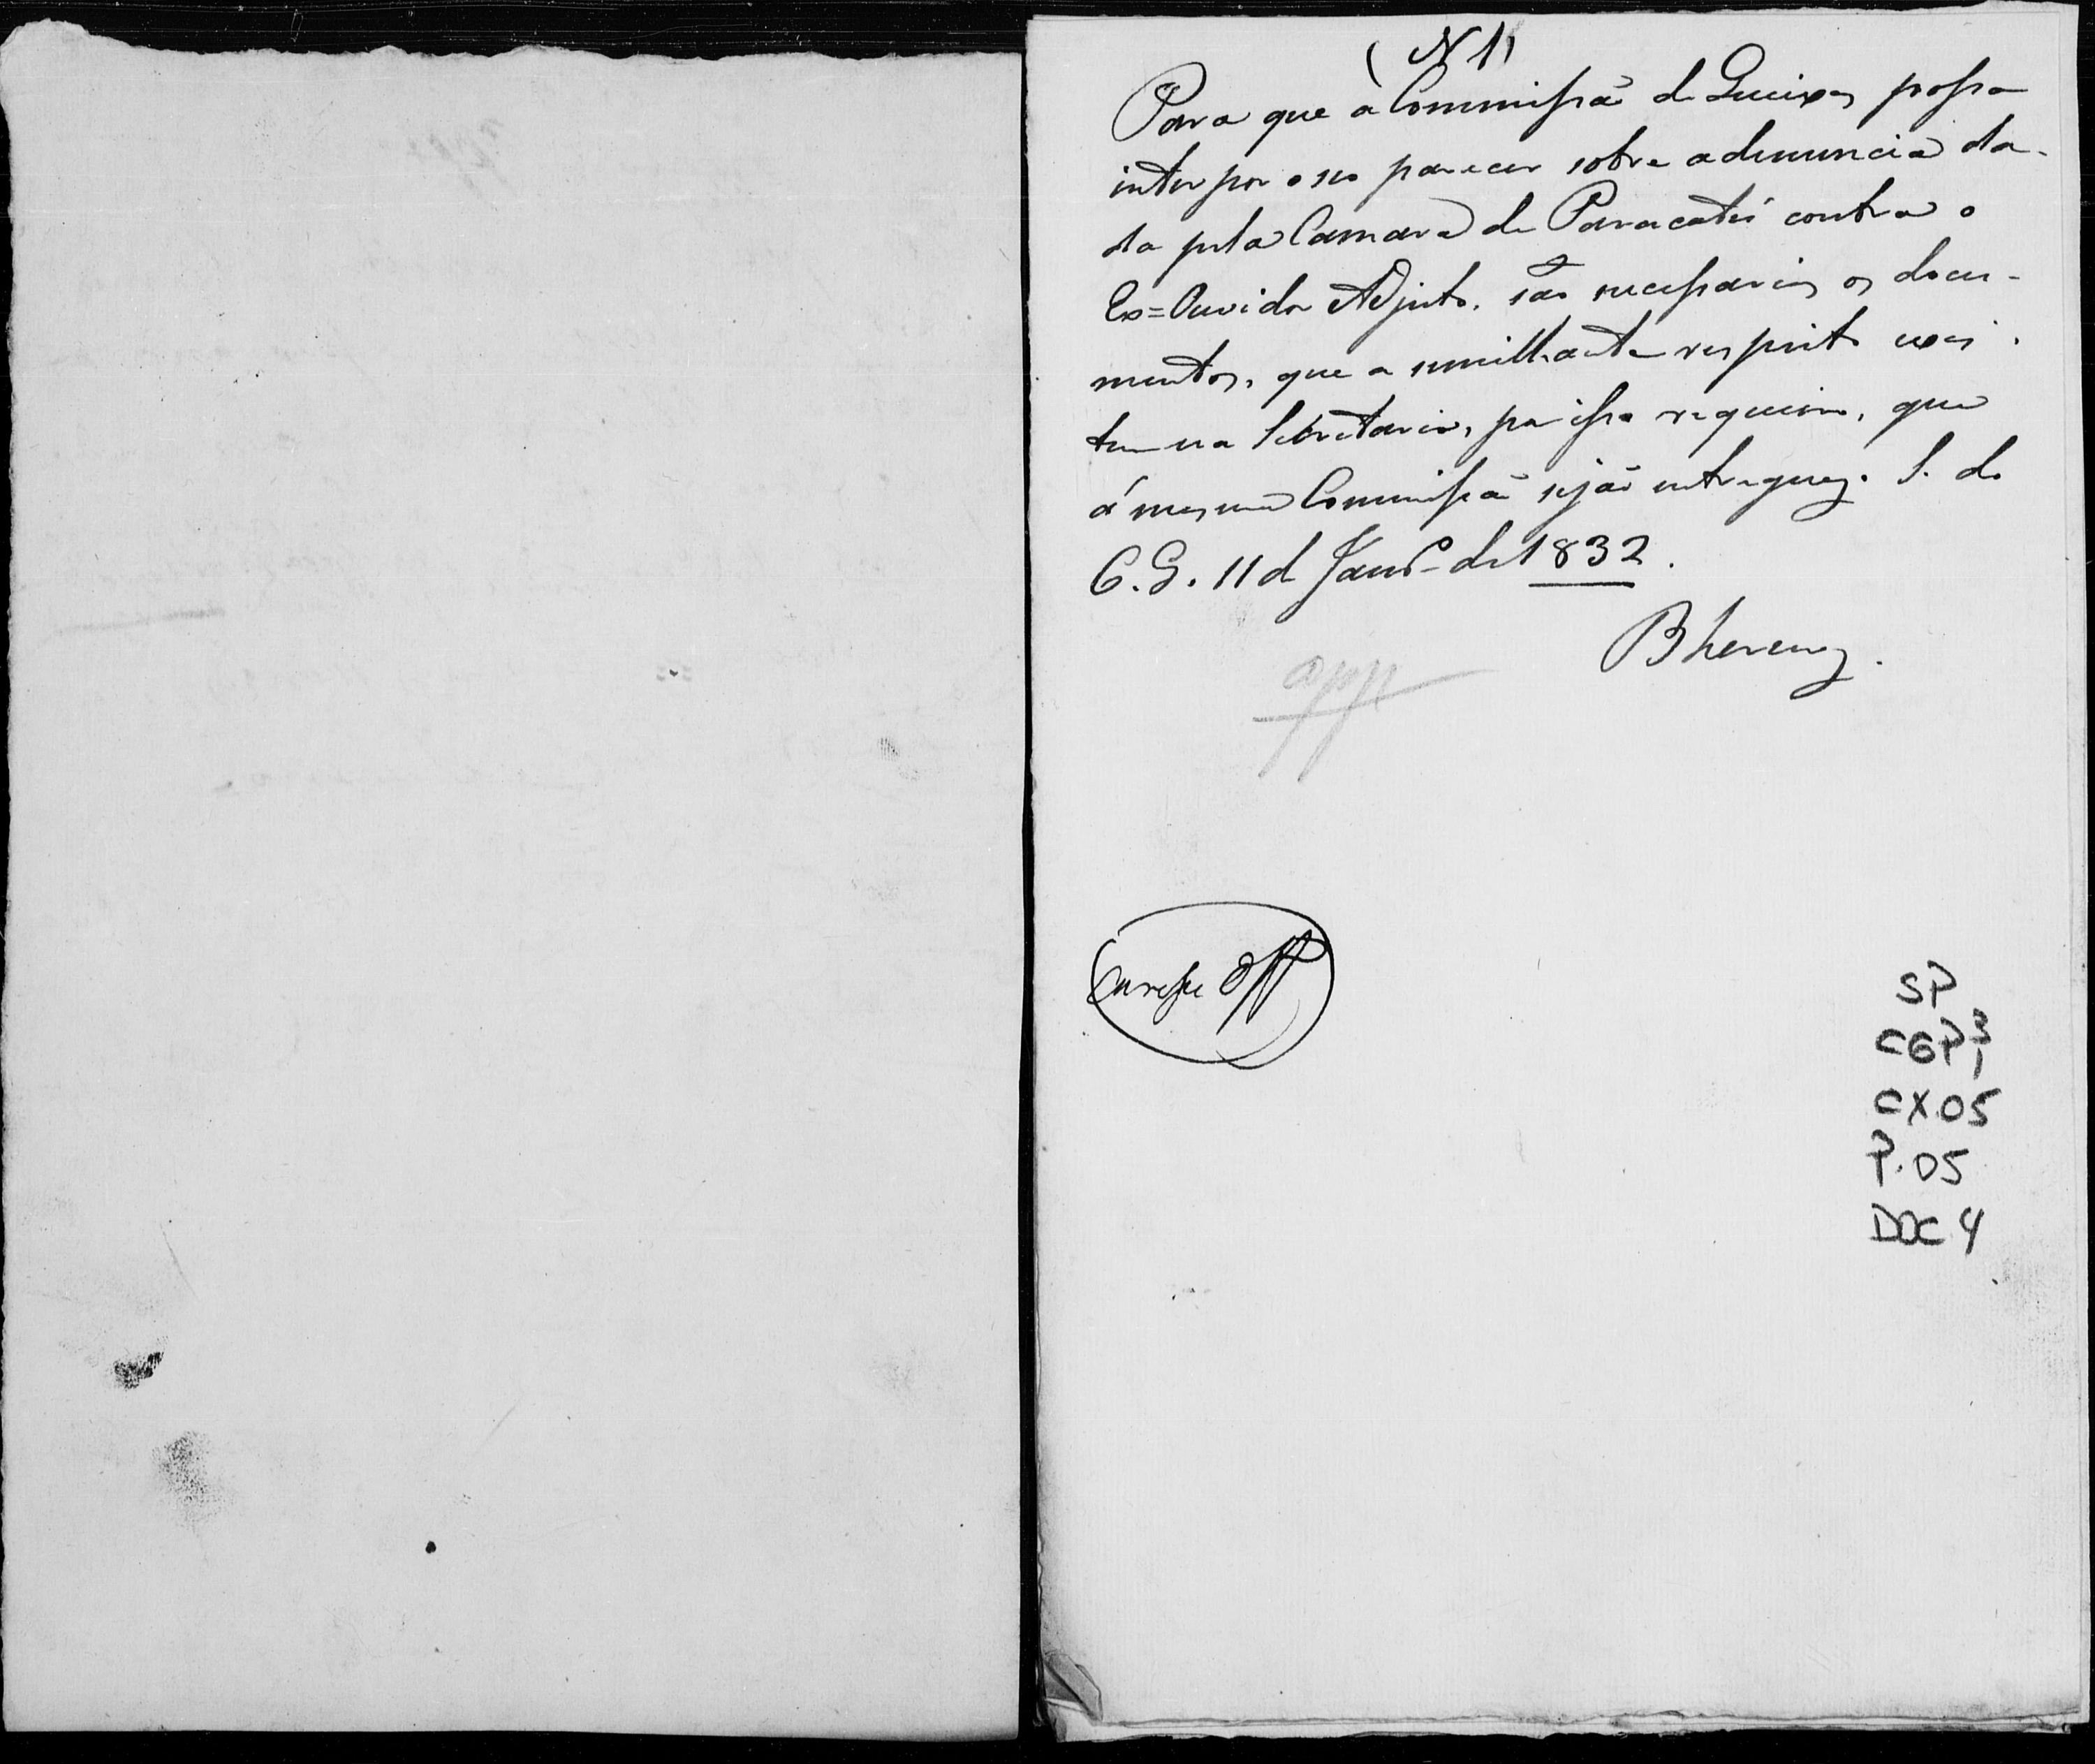 (N 1)
Para que a Commissão de Queixas possa
interpor o seo parecer sobre a denuncia da-
da pela Camara de Paracatú contra o
Ex=Ouvidor Adjuto, são necessarios os docu-
mentos, que a similhante respeito exis-
tem na Secretaria, por isso requeiro, que
á mesma Commissão sejão entregues. S. do
C. G. 11 de Janrº de 1832.
Bhering.
app
SP
CGP 3
1
CX.05
P.05
DOC 4